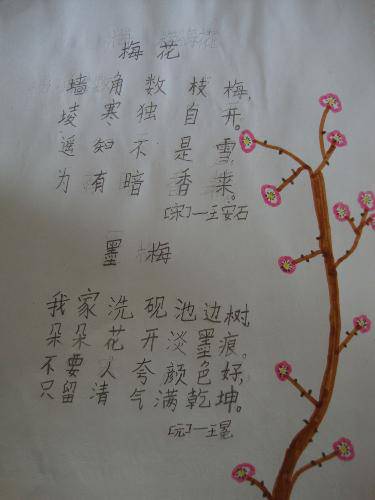 梅花
墙角数枝梅,
凌寒独自开。
遥知不是雪,
为有暗香来。
[宋]—王安石
墨梅
我家洗砚池边树,
朵朵花开淡墨痕。
不要人夸颜色好,
只留清气满乾坤。
[元]—王冕